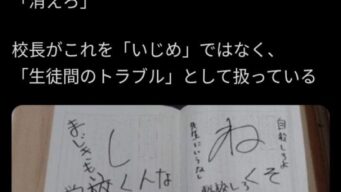 「消えろ」
校長がこれを「いじめ」ではなく、
「生徒間のトラブル」として扱っている
まじきもい
し
学校くんな
ね
自殺しろよ
先生にいうなよ